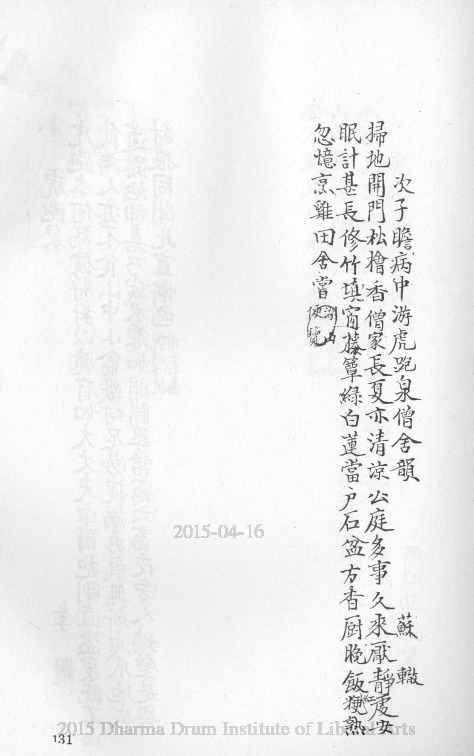 次子瞻病中游虎跑泉僧舍韻
蘇轍
掃地開門松檜香僧家長夏亦清涼公庭多事久來厭靜處安
眠計甚長修竹填窗藤簟綠白蓮當户石盆方香厨晚飯紅粳熟
忽憶烹雞田舍嘗湖山便覽
2015-04-16
2015 Dharma Drum Institute of Liberal Arts
131